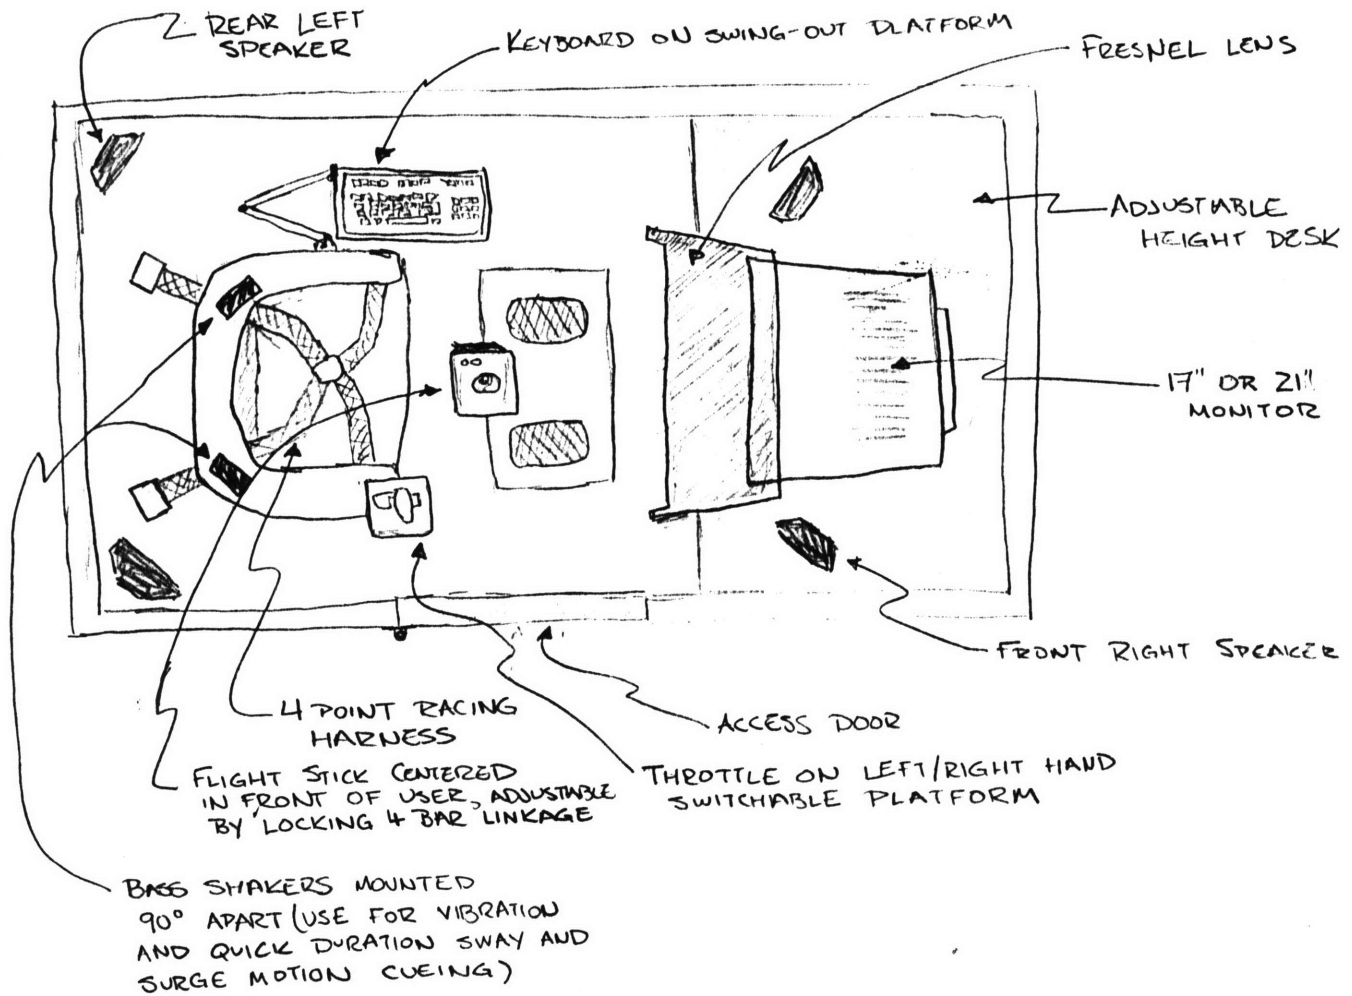 REAR LEFT
SPEAKER
KEYBOARD ON SWING-OUT PLATFORM
FRESNEL LENS
ADJUSTABLE
HEIGHT DESK
17" OR 21"
MONITOR
FRONT RIGHT SPEAKER
ACCESS DOOR
4 POINT RACING
HARNESS
THROTTLE ON LEFT/RIGHT HAND
SWITCHABLE PLATFORM
FLIGHT STICK CENTERED
IN FRONT OF USER, ADJUSTABLE
BY LOCKING 4 BAR LINKAGE
BASS SHAKERS MOUNTED
90° APART (USE FOR VIBRATION
AND QUICK DURATION SWAY AND
SURGE MOTION CUEING)